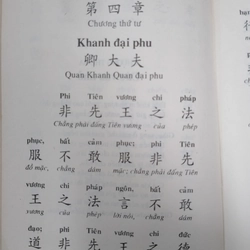 第四章
Chương thứ tư
Khanh đại phu
卿大夫
Quan Khanh Quan đại phu
Phi Tiên vương chi pháp
非先王之法
Chẳng phải đấng Tiên vương của phép
phục, bất cảm phục; phi Tiên
服不敢服非先
đồ mặc, chẳng dám mặc; chẳng phải đấng Tiên
vương chi pháp ngôn, bất cảm
王之法言不敢
vương của phép lời nói, chẳng dám
đạo; phi Tiên vương chi đức
道非先王之德